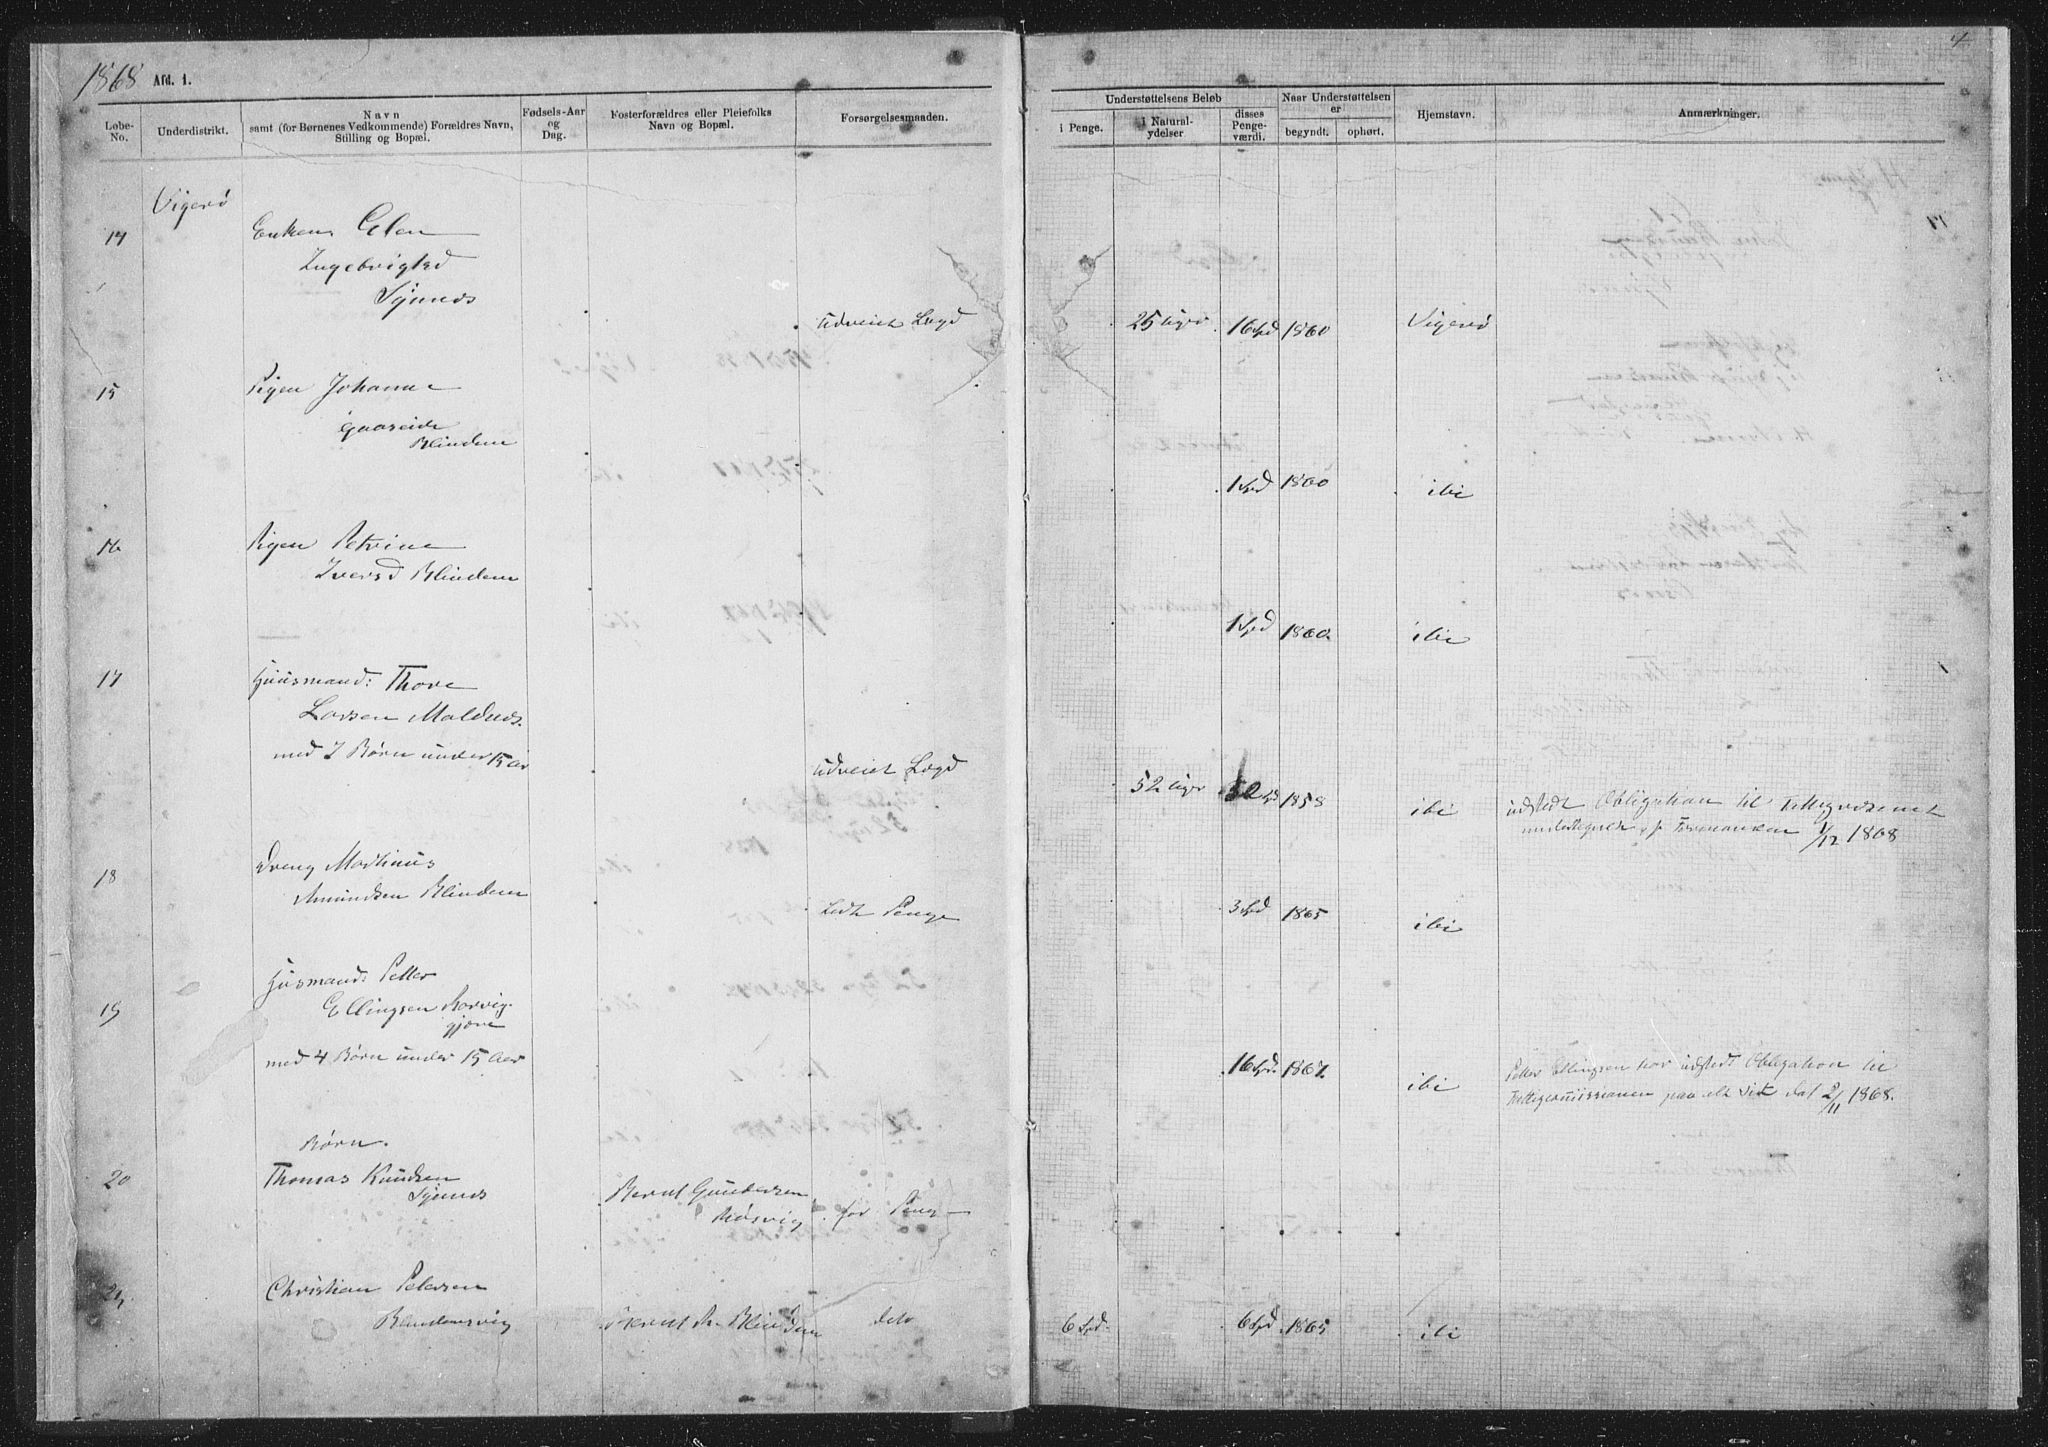 1868 Afd. 1.
4
Løbe-No.
Underdistrikt.
Navn
samt (for Børnenes Vedkommende) Forældres Navn,
Stilling og Bopæl.
Fødsels-Aar og Dag.
Fosterforældres eller Pleiefolks
Navn og Bopæl.
Forsørgelsesmaaden.
Understøttelsens Beløb
i Penge.
i Natural-ydelser
disses Penge-værdi.
Naar Understøttelsen er
begyndt.
ophørt.
Hjemstavn.
Anmærkninger.
Vigerø
14 Enken Elen
Ingebrigtsd
Synnes
udveiet Lægd 25 Uger 16 Spd 1860 Vigerø
15 Pigen Johanne
Gaaseide
Blindem
1 Spd 1860 ibi
16 Pigen Petrine
Iversd Blindem
1 Spd 1860 ibi
17 Huusmand: Thore
Larsen Maldnes
med 2 Børn under 15 Aar
udveiet Lægd 52 Uger 52 Spd 1858 ibi udstedt Obligation til Fattigvæsenet
Formanden 1/12 1868
18 Dreng Martinus
Amundsen Blindem
Lidt Penge 3 Spd 1865 ibi
19 Huusmand: Petter
Ellingsen
med 4 Børn under 15 Aar
16 Spd. 1867. ibi Petter Ellingsen har udstedt Obligation til
Fattigcommissionen paa alt sit dat 2/11 1868.
Børn.
20 Thomas Knudsen
Synnes
Bernt Gundersen
for Penge
21 Christian Petersen
Blindemsvig
Bernt Blindem dito 6 Spd. 6 Spd 1865 ibi